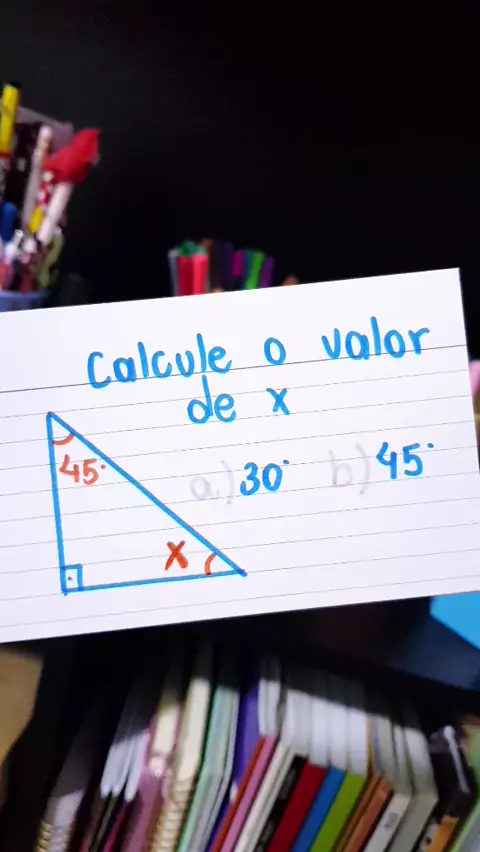 Calcule o valor
de x
a) 30° b) 45°
45°
x